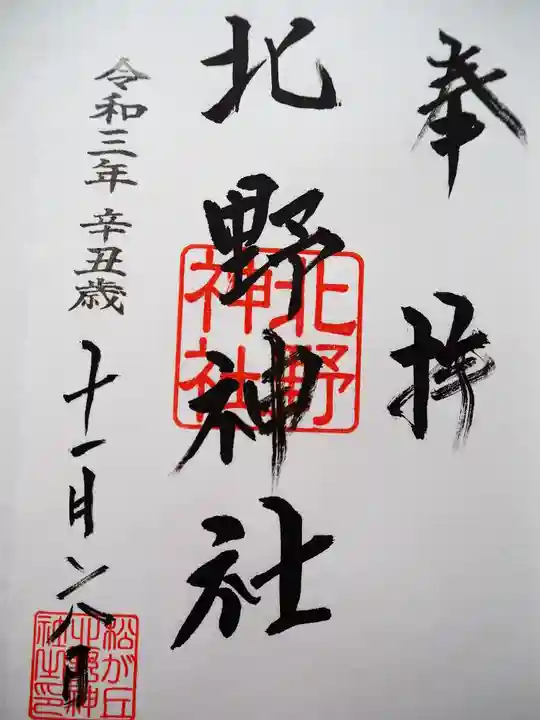 奉拝
北野神社
北野神社
令和三年 辛丑歳 十一月六日
松が丘北野神社之印